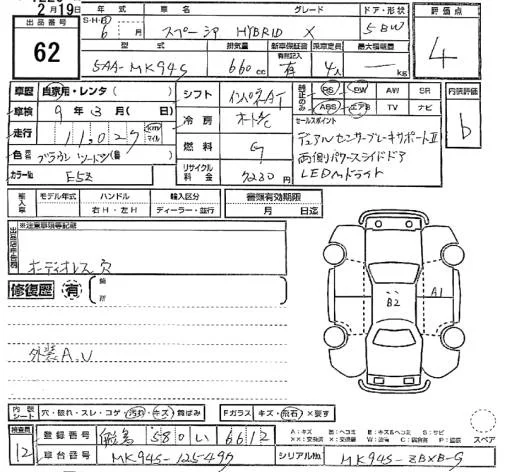 2月19日
出品番号
62
年式 車名 グレード ドア・形状
S・H・R
6 月 スペーシア HYBRID X 5BW
評価点
4
型式 排気量 新車保証書 乗車定員 最大積載量
有無記入
5AA-MK94S 660cc 有 4人 kg
車歴 自家用・レンタ( )
車検 9年3月( 日)
走行 11,027 km マイル
色 ブラウンツートン
カラーNo. E5Z
シフト インパネAT
冷房 オートAC
燃料 G
リサイクル料金 7230円
純正のみ PS PW AW SR
ABS エアB TV ナビ
内装評価
b
セールスポイント
デュアルセンサーブレーキサポートⅡ
両側パワースライドドア
LEDヘッドライト
輸入車 モデル年式 ハンドル 輸入区分
右H・左H ディーラー・並行
書類有効期限
月 日迄
※注意事項等記載
オーディオレス穴
修復歴 有
箇所
外装A,U
B2
A1
内装シート 穴・破れ・スレ・コゲ・汚れ・キズ・黄ばみ
Fガラス キズ・飛石・×要す
A：キズ B：ヘコミ
スペア
検査員
12
登録番号 580 い 6612
車台番号 MK94S-125497
シリアルNo. MK94S-ZBXB-S